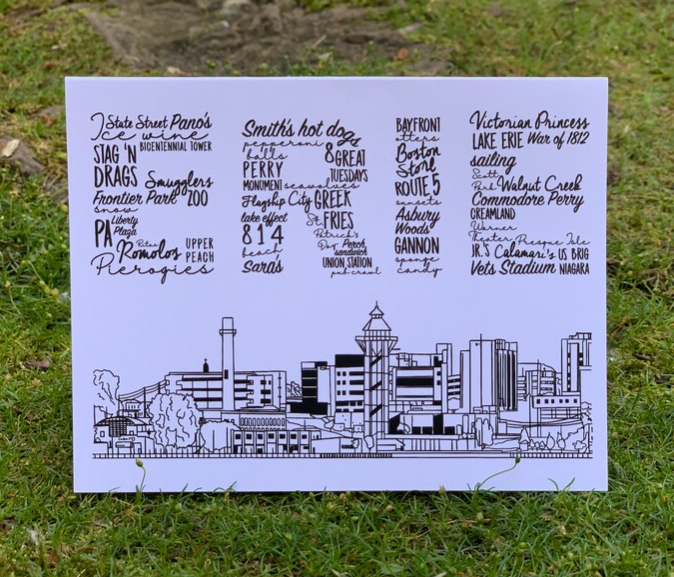 State Street Pano's
Ice wine
BICENTENNIAL TOWER
STAG 'N
DRAGS Smugglers
Frontier Park ZOO
snow
PA Liberty
Plaza
Romolos UPPER
PEACH
Pierogies
Smith's hot dogs
pepperoni
balls
8 GREAT
TUESDAYS
PERRY
MONUMENT seawolves
Flagship City GREEK
FRIES
lake effect
St.
Patrick's
Day
814
Perch
sandwich
beach
UNION STATION
Sara's
pub crawl
BAYFRONT
otters
Boston
Store
ROUTE 5
sunsets
Asbury
Woods
GANNON
sponge
candy
Victorian Princess
LAKE ERIE War of 1812
sailing
Scott
Park Walnut Creek
Commodore Perry
CREAMLAND
Warner
Theater Presque Isle
JR.'S Calamari's US BRIG
Vets Stadium NIAGARA